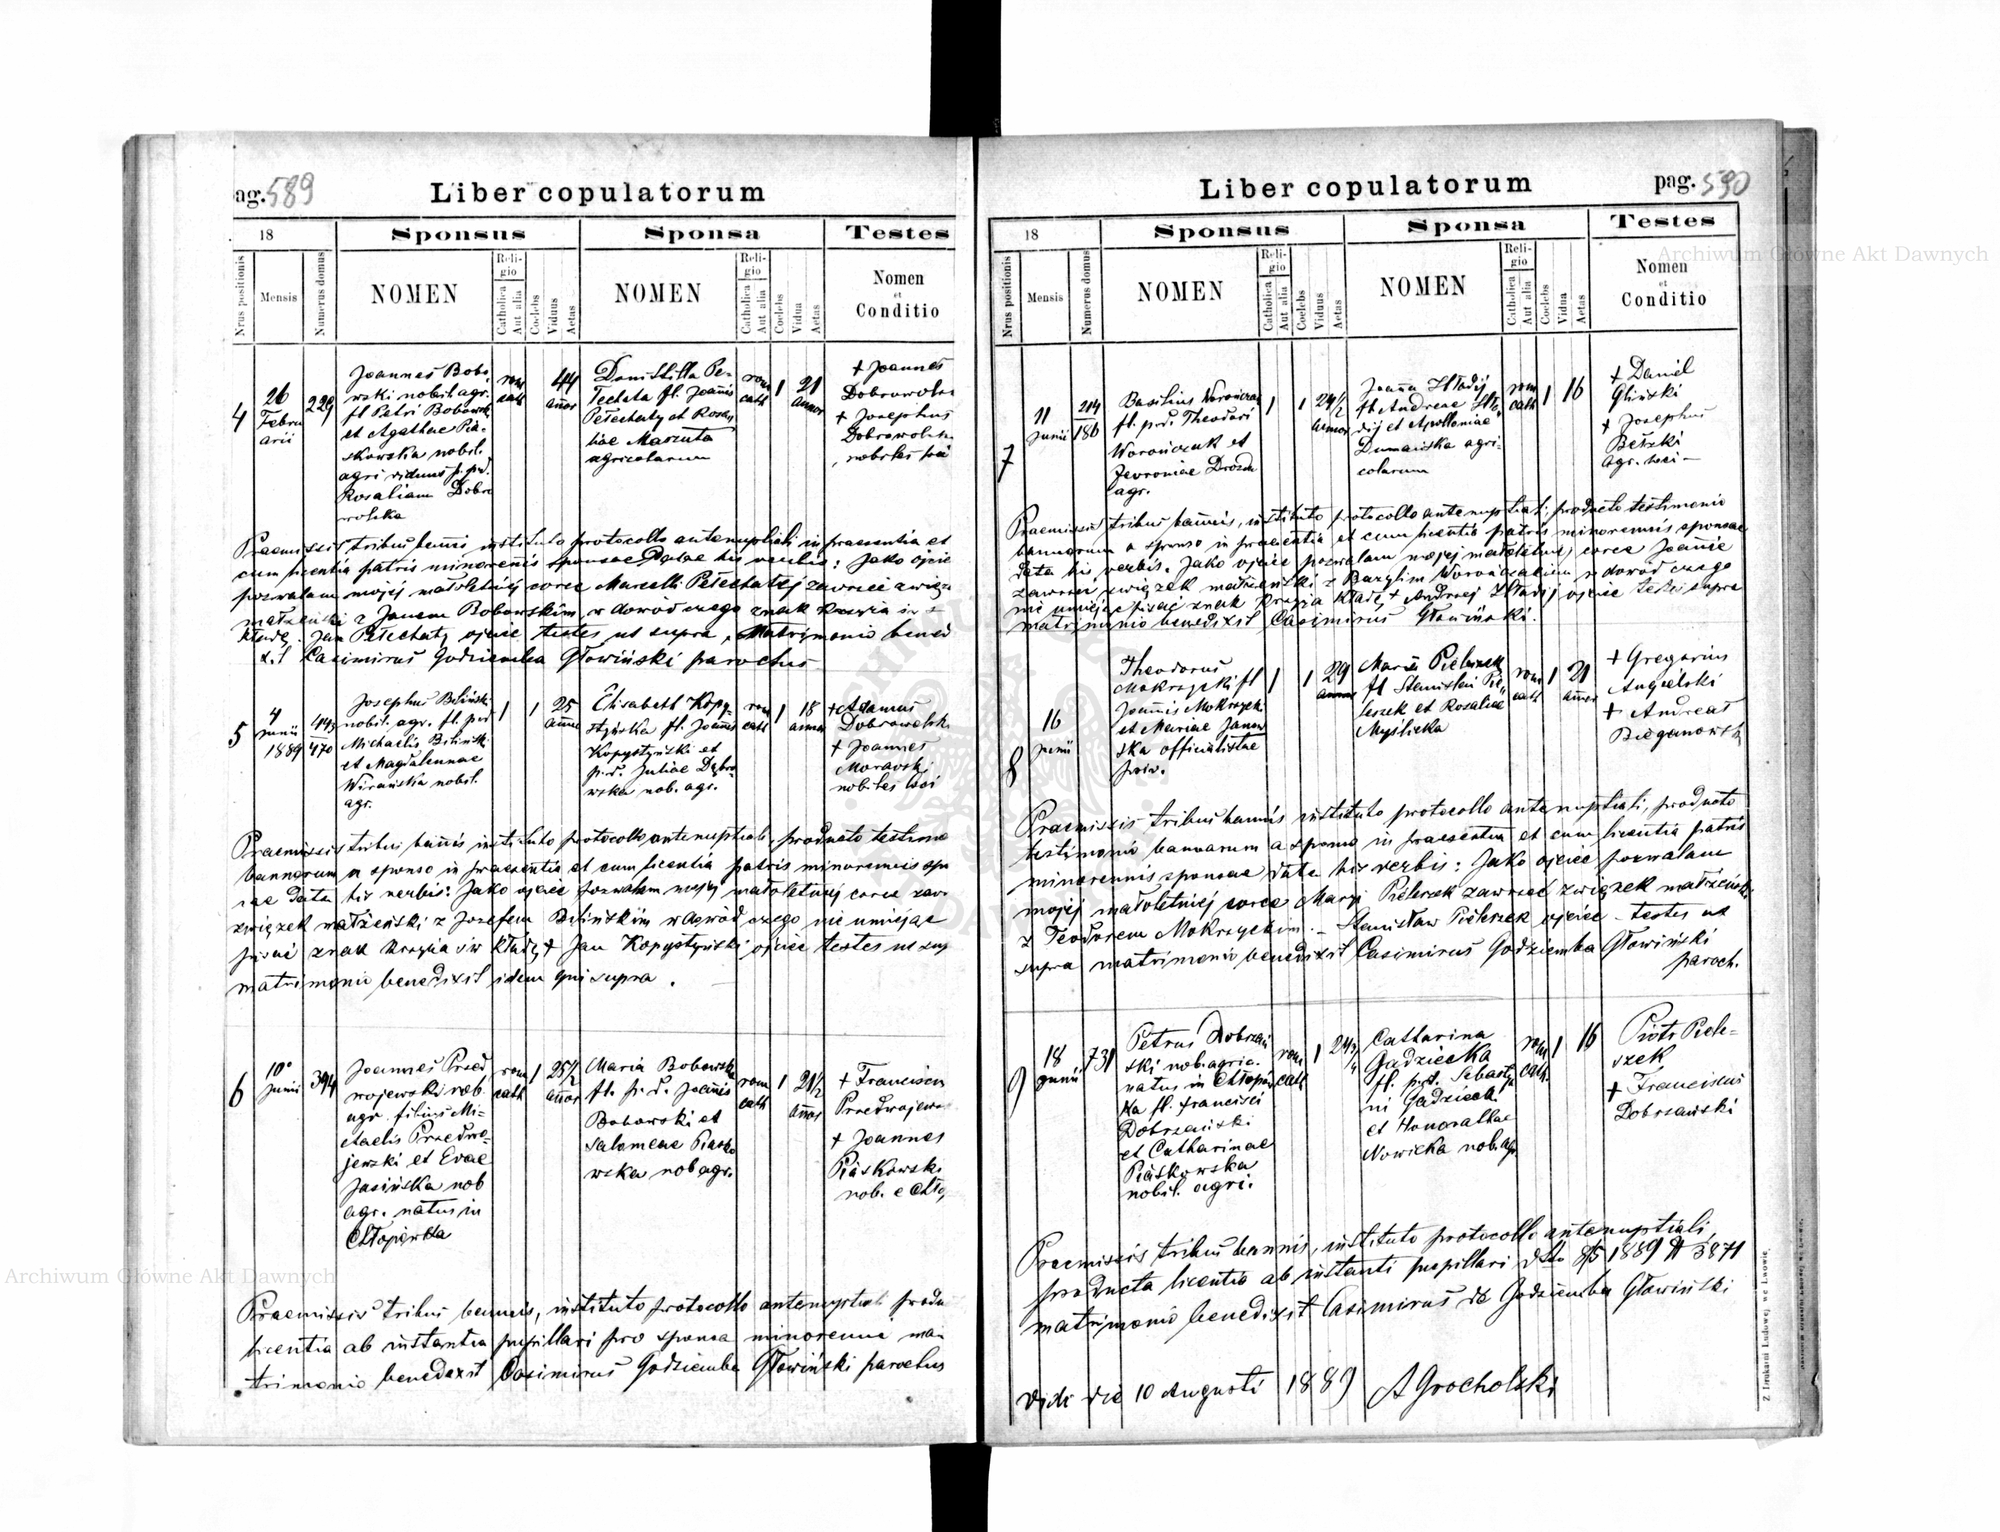 ag. 589
Liber copulatorum
18
Sponsus
Sponsa
Testes
Nrus positionis
Mensis
Numerus domus
NOMEN
Religio
Catholica
Aut alia
Coelebs
Viduus
Aetas
NOMEN
Religio
Catholica
Aut alia
Coelebs
Vidua
Aetas
Nomen
et
Conditio
4
26
Febru
arii
229
Joannes Bobo
wski nobil. agr.
fl Petri Bobowski
et Agathae Pia-
skowska nobil.
agri viduus p. pr.
Rosaliam Dobro
wolska
rom
cath
44
annor
Pe-
techata fl. Joannis
Petechaty et Rosa
liae Marcuta
agricolarum
rom
cath
1
21
annor
+ Joannes
Dobrowols
+ Josephus
Dobrowolsk
nobiles
Praemissis tribus bannis, instituto protocollo antenuptiali in praesentia et
cum licentia patris minorenis sponsae Datae his verbis: Jako ojciec
pozwalam mojej małoletniej corce Marcelli Pełechatej zawrzeć związ-
małżeński z Janem Bobowskim, w dowód czego znak krzyża
kładę. Jan Pełechaty ojciec testes ut supra, Matrimonio bened
x.t Casimirus Godziemba Głowiński parochus
5
4
Junii
1889
443
470
Josephus Biliński
nobil. agr. fl. prd
Michaelis Biliński
et Magdalennae
Winańska nobil.
agr.
1
1
25
annor
Elisabeth Kopy-
styńska fl. Joannis
Kopystyński et
p.d. Juliae Dąbro
wska nob. agr.
rom
cath
1
18
annor
+ Adamus
Dobrowolsk
+ Joannes
Moravsk
nobiles
Praemissis tribus bannis instituto protocollo antenuptiali, producto testimo
bannorum a sponso in praesentia et cum licentia patris minorenis spo
sae Data his verbis: Jako ojciec pozwalam mojej małoletniej corce zaw-
związek małżeński z Jozefem Bilińskim w dowód czego nie umiejąc
pisać znak krzyża św kładę + Jan Kopystyński ojciec testes ut sup
matrimonio benedixit idem qui supra.
6
10
Junii
394
Joannes Przed
wojewski nob
agr. filius Mi-
chaelis Przedwo-
jewski et Evae
Jasińska nob
agr. natus in
Chłopówka
rom
cath
1
25 1/2
annor
Maria Bobowska
fl. p. d. Joannis
Bobowski et
Salomeae Piasko
wska nob agr.
rom
cath
1
21 1/2
annor
+ Franciscus
Przedwojews
+ Joannes
Piaskowski
nob. e Chło
Praemissis tribus bannis, instituto protocollo antenuptiali produ
licentia ab instantia pupillari pro sponsa minorenne ma-
trimonio benedixit Casimirus Godziemba Głowiński parochus
pag. 590
Liber copulatorum
18
Sponsus
Sponsa
Testes
Nrus positionis
Mensis
Numerus domus
NOMEN
Religio
Catholica
Aut alia
Coelebs
Viduus
Aetas
NOMEN
Religio
Catholica
Aut alia
Coelebs
Vidua
Aetas
Nomen
et
Conditio
7
11
Junii
214
186
Basilius Worończak
fl. prd. Theodori
Worończuk et
Jevroniae Drozda
agr.
1
1
24 1/2
annor
Joanna Hładij
fl. Andreae Hła
dij et Apolloniae
Dumańska agri-
colarum
rom
cath
1
16
+ Daniel
Gliński
+ Josephus
Bełzki
Agr.
Praemissis tribus bannis, instituto protocollo antenuptiali, producto testimonio
bannorum a sponso in praesentia et cum licentia patris minorennis sponsae
data his verbis. Jako ojciec pozwalam mojej małoletniej corce Joannie
zawrzeć związek małżeński z Bazylim Worończakiem w dowód czego
nie umiejąc pisać znak krzyża kładę + Andrzej Hładij ojciec testes supra
matrimonio benedixit Casimirus Głowiński.
8
16
Junii
Theodorus
Mokrzycki fl
Joannis Mokrzycki
et Mariae Janow
ska officialistae
priv.
1
1
29
annor
Maria Pieleszek
fl Stanislai Pie
leszek et Rosaliae
Myślicka
rom
cath
1
21
annor
+ Gregorius
Angielski
+ Andreas
Bieganowsk
Praemissis tribus bannis instituto protocollo antenuptiali, producto
testimonio bannorum a sponso in praesentia et cum licentia patris
minorennis sponsae data his verbis: Jako ojciec pozwalam
mojej małoletniej corce Maryi Pieleszek zawrzeć związek małżeński
z Teodorem Mokrzyckim. - Stanisław Pieleszek ojciec - testes ut
supra matrimonio benedixit Casimirus Godziemba Głowiński
paroch.
9
18
Junii
731
Petrus Dobrzań
ski nob. agric.
natus in Chłopów
ka fl. Francisci
Dobrzański
et Catharinae
Piaskowska
nobil. agri.
rom
cath
1
24 3/4
Catharina
Gadziecka
fl. p.d. Sebastya
ni Gadziecki
et Honorathae
Nowicka nob. agr
rom
cath.
1
16
Piotr Piele-
szek
+ Franciscus
Dobrzański
Praemissis tribus bannis, instituto protocollo antenuptiali,
producta licentia ab instanti pupillari dto 8/5 1889 N 3871
matrimonio benedixit Casimirus de Godziemba Głowiński
Vidi die 10 Augusti 1889 A Grocholski
Z Drukarni Ludowej we Lwowie.
Archiwum Główne Akt Dawnych
Archiwum Główne Akt Dawnych